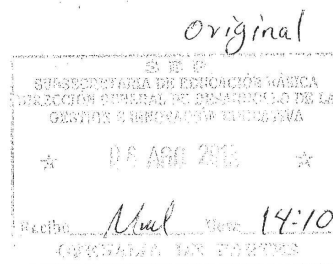 Original
S E P
SUBSECRETARÍA DE EDUCACIÓN BÁSICA
DIRECCIÓN GENERAL DE DESARROLLO DE LA
GESTIÓN E INNOVACIÓN EDUCATIVA
AGO
Recibe Hora 14:10
OFICIALÍA DE PARTES